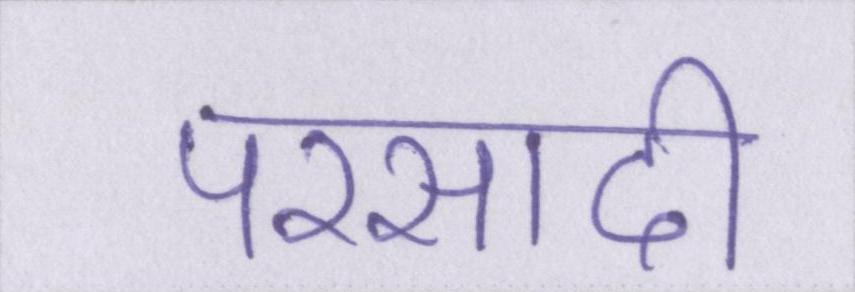 परसादी